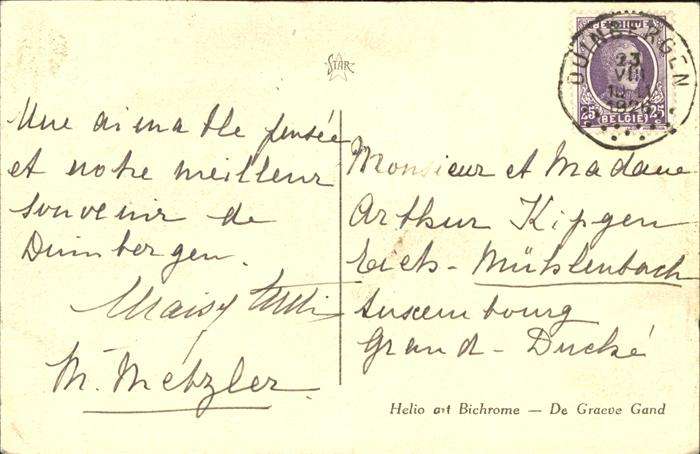 STAR
DUINBERGEN
23
VIII
1926
25 BELGIE 25
Une aimable pensée
et notre meilleur
souvenir de
Duinbergen.
Maisy
M. Metzler.
Monsieur et Madame
Arthur Kipgen
Eich - Mühlenbach
Luxembourg
Grand - Duché
Helio art Bichrome — De Graeve Gand